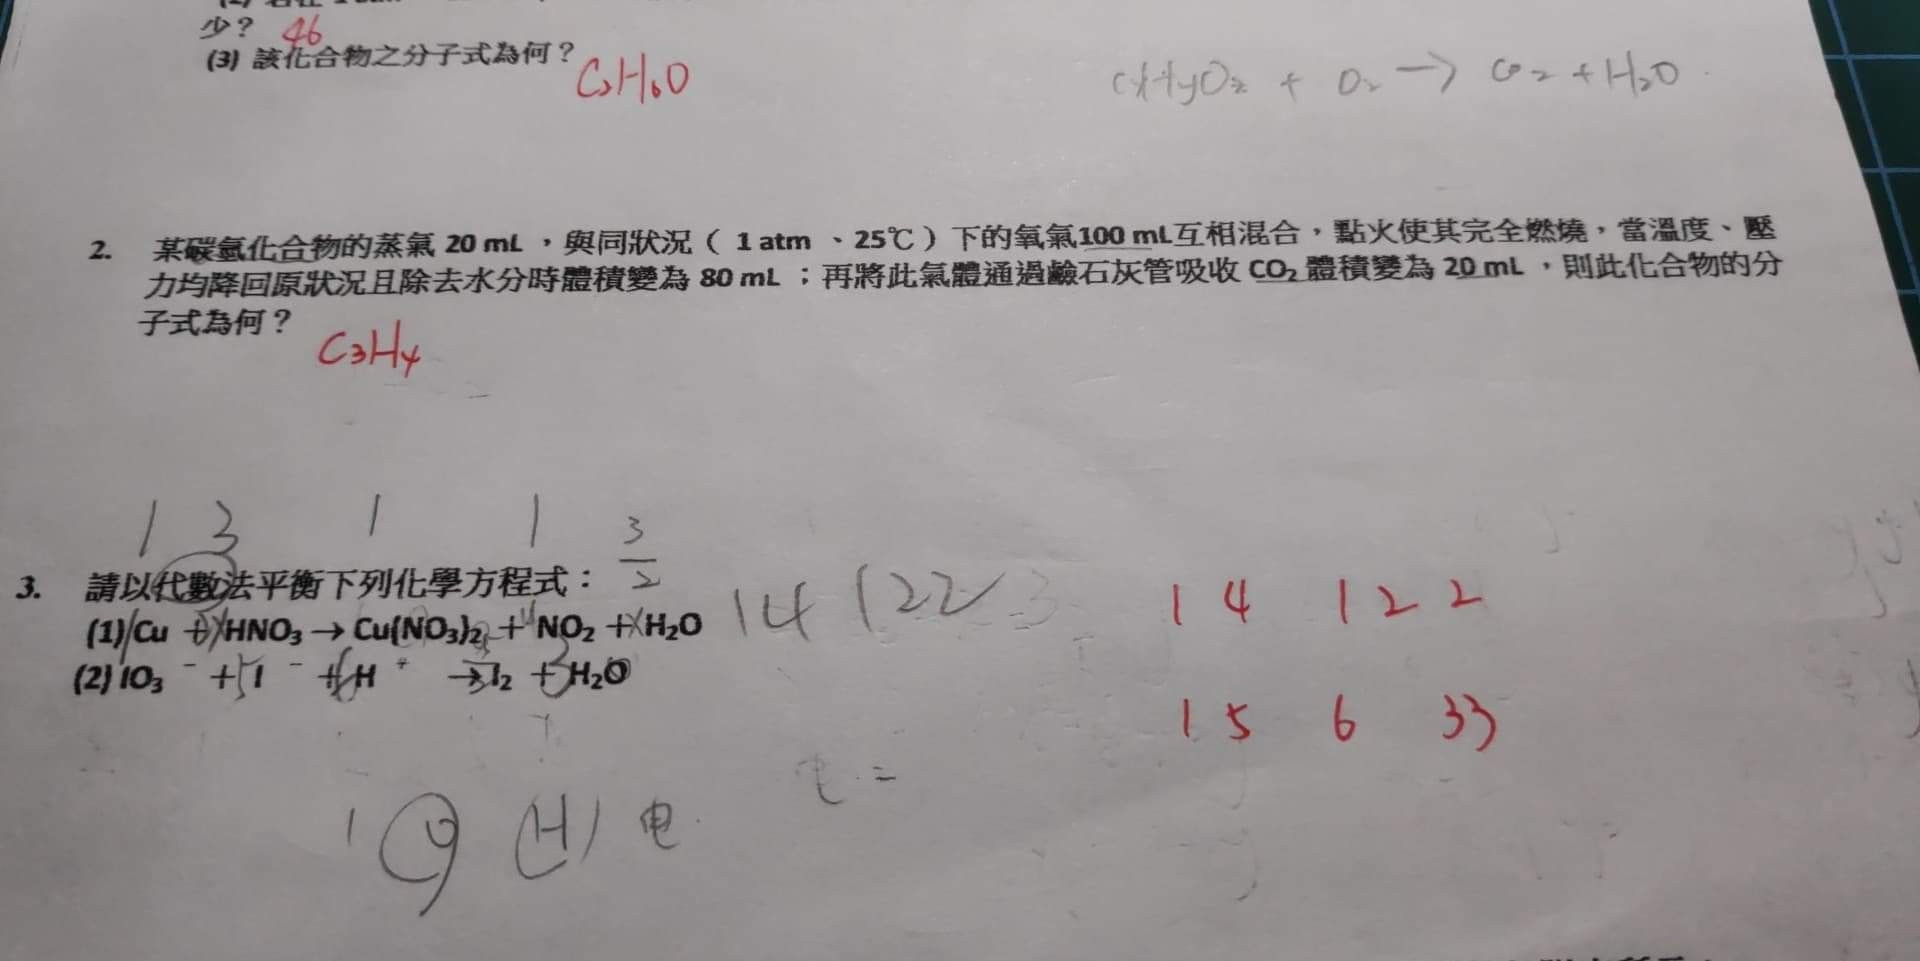 少？ 46
(3) 該化合物之分子式為何？ C₂H₆O
CxHyOz + O₂ → CO₂ + H₂O
2. 某碳氫化合物的蒸氣 20 mL，與同狀況（1 atm、25℃）下的氧氣100 mL互相混合，點火使其完全燃燒，當溫度、壓
力均降回原狀況且除去水分時體積變為 80 mL；再將此氣體通過鹼石灰管吸收 CO₂ 體積變為 20 mL，則此化合物的分
子式為何？
C₃H₄
1 3 1 1 3/2
3. 請以代數法平衡下列化學方程式：
(1) Cu + HNO₃ → Cu(NO₃)₂ + NO₂ + H₂O 1 4 1 2 2 1 4 1 2 2
(2) IO₃⁻ + 5 I⁻ + 6 H⁺ → 3 I₂ + 3 H₂O
1 5 6 3 3
O H 电